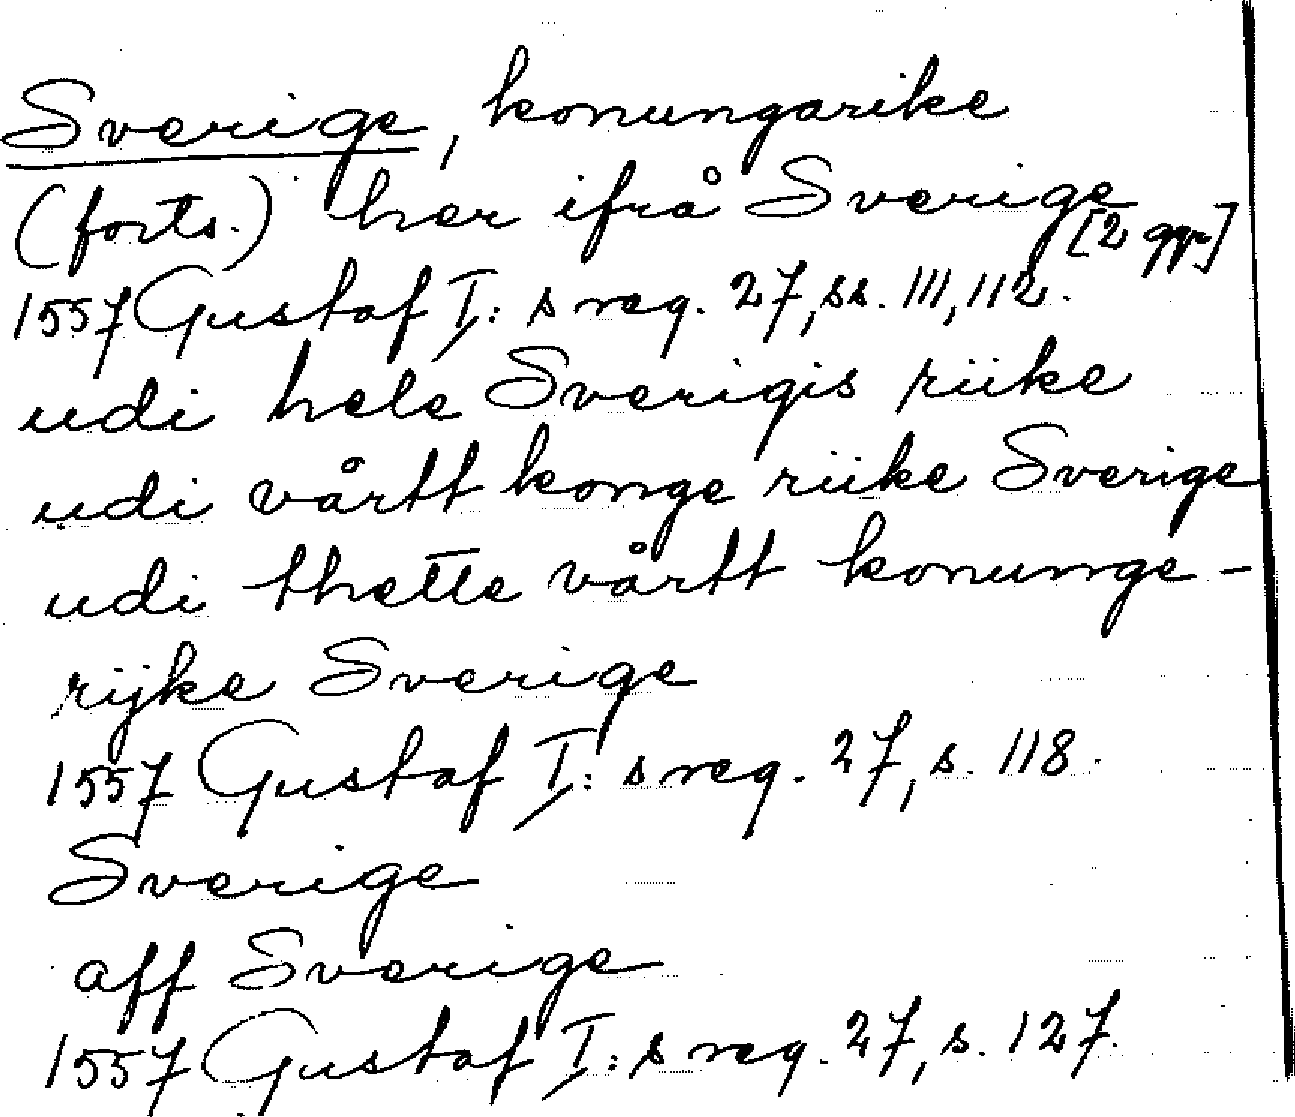 Sverige, konungarike
(forts.) her ifrå Sverige [2 ggr]
1557 Gustaf I:s reg. 27, ss. 111, 112.
udi hele Sverigis riike
udi vårtt konge riike Sverige
udi thette vårtt konunge-
rijke Sverige
1557 Gustaf I:s reg. 27, s. 118.
Sverige
aff Sverige
1557 Gustaf I:s reg. 27, s. 127.